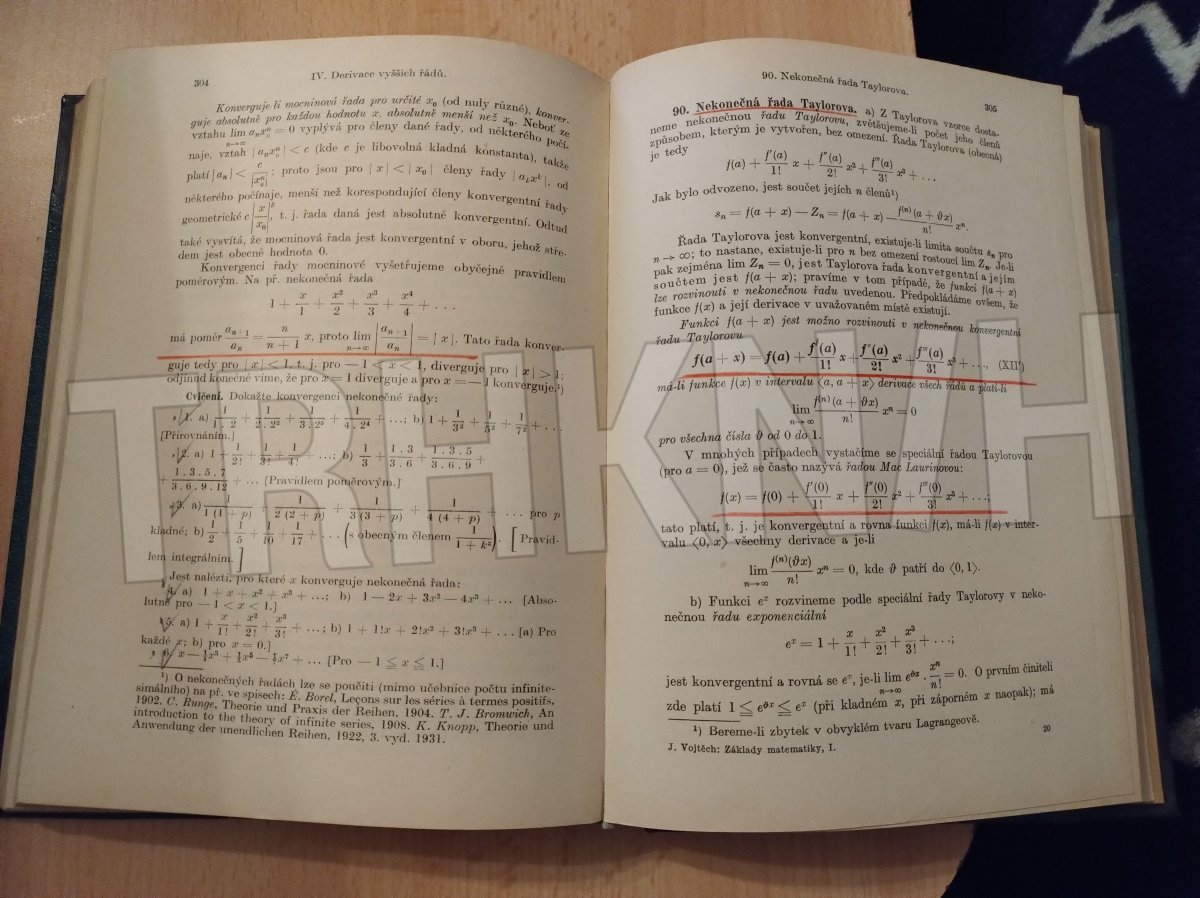 304
IV. Derivace vyšších řádů.
Konverguje-li mocninová řada pro určité x₀ (od nuly různé), konver-
guje absolutně pro každou hodnotu x, absolutně menší než x₀. Neboť ze
vztahu lim aₙx₀ⁿ = 0 vyplývá pro členy dané řady, od některého počí-
n→∞
naje, vztah |aₙx₀ⁿ| < c (kde c je libovolná kladná konstanta), takže
platí |aₙ| < c/|x₀ⁿ|; proto jsou pro |x| < |x₀| členy řady |aₖxᵏ|, od
některého počínaje, menší než korespondující členy konvergentní řady
geometrické c|x/x₀|ᵏ, t. j. řada daná jest absolutně konvergentní. Odtud
také vysvítá, že mocninová řada jest konvergentní v oboru, jehož stře-
dem jest obecně hodnota 0.
Konvergenci řady mocninové vyšetřujeme obyčejně pravidlem
poměrovým. Na př. nekonečná řada
1 + x/1 + x²/2 + x³/3 + x⁴/4 + . . .
má poměr aₙ₊₁/aₙ = n/(n + 1) x, proto lim |aₙ₊₁/aₙ| = |x|. Tato řada konver-
n→∞
guje tedy pro |x| < 1, t. j. pro — 1 < x < 1, diverguje pro |x| > 1;
odjinud konečně víme, že pro x = 1 diverguje a pro x = — 1 konverguje.¹)
Cvičení. Dokažte konvergenci nekonečné řady:
1. a) 1/(1 . 2) + 1/(2 . 2²) + 1/(3 . 2³) + 1/(4 . 2⁴) + ...; b) 1 + 1/3² + 1/5² + 1/7² + . . .
[Přirovnáním.]
2. a) 1 + 1/2! + 1/3! + 1/4! + ...; b) 1/3 + (1 . 3)/(3 . 6) + (1 . 3 . 5)/(3 . 6 . 9) +
+ (1 . 3 . 5 . 7)/(3 . 6 . 9 . 12) + ... [Pravidlem poměrovým.]
3. a) 1/(1 (1 + p)) + 1/(2 (2 + p)) + 1/(3 (3 + p)) + 1/(4 (4 + p)) + ... pro p
kladné; b) 1/2 + 1/5 + 1/10 + 1/17 + . . . (s obecným členem 1/(1 + k²)). [Pravid-
lem integrálním.]
Jest nalézti, pro které x konverguje nekonečná řada:
4. a) 1 + x + x² + x³ + ...; b) 1 — 2x + 3x² — 4x³ + ... [Abso-
lutně pro — 1 < x < 1.]
5. a) 1 + x/1! + x²/2! + x³/3! + ...; b) 1 + 1!x + 2!x² + 3!x³ + ... [a) Pro
každé x; b) pro x = 0.]
6. x — ⅓x³ + ⅕x⁵ — ⅐x⁷ + ... [Pro — 1 ≦ x ≦ 1.]
¹) O nekonečných řadách lze se poučiti (mimo učebnice počtu infinite-
simálního) na př. ve spisech: É. Borel, Leçons sur les séries à termes positifs,
1902. C. Runge, Theorie und Praxis der Reihen, 1904. T. J. Bromwich, An
introduction to the theory of infinite series, 1908. K. Knopp, Theorie und
Anwendung der unendlichen Reihen, 1922, 3. vyd. 1931.
90. Nekonečná řada Taylorova.
305
90. Nekonečná řada Taylorova. a) Z Taylorova vzorce dosta-
neme nekonečnou řadu Taylorovu, zvětšujeme-li počet jeho členů
způsobem, kterým je vytvořen, bez omezení. Řada Taylorova (obecná)
je tedy
f(a) + f'(a)/1! x + f''(a)/2! x² + f'''(a)/3! x³ + . . .
Jak bylo odvozeno, jest součet jejích n členů¹)
sₙ = f(a + x) — Zₙ = f(a + x) — f⁽ⁿ⁾(a + ϑx)/n! xⁿ.
Řada Taylorova jest konvergentní, existuje-li limita součtu sₙ pro
n → ∞; to nastane, existuje-li pro n bez omezení rostoucí lim Zₙ. Je-li
pak zejména lim Zₙ = 0, jest Taylorova řada konvergentní a jejím
součtem jest f(a + x); pravíme v tom případě, že funkci f(a + x)
lze rozvinouti v nekonečnou řadu uvedenou. Předpokládáme ovšem, že
funkce f(x) a její derivace v uvažovaném místě existují.
Funkci f(a + x) jest možno rozvinouti v nekonečnou konvergentní
řadu Taylorovu
f(a + x) = f(a) + f'(a)/1! x + f''(a)/2! x² + f'''(a)/3! x³ + ..., (XII')
má-li funkce f(x) v intervalu ⟨a, a + x⟩ derivace všech řádů a platí-li
lim f⁽ⁿ⁾(a + ϑx)/n! xⁿ = 0
n→∞
pro všechna čísla ϑ od 0 do 1.
V mnohých případech vystačíme se speciální řadou Taylorovou
(pro a = 0), jež se často nazývá řadou Mac Laurinovou:
f(x) = f(0) + f'(0)/1! x + f''(0)/2! x² + f'''(0)/3! x³ + ...;
tato platí, t. j. je konvergentní a rovna funkci f(x), má-li f(x) v inter-
valu ⟨0, x⟩ všechny derivace a je-li
lim f⁽ⁿ⁾(ϑx)/n! xⁿ = 0, kde ϑ patří do ⟨0, 1⟩.
n→∞
b) Funkci eˣ rozvineme podle speciální řady Taylorovy v neko-
nečnou řadu exponenciální
eˣ = 1 + x/1! + x²/2! + x³/3! + ...;
jest konvergentní a rovná se eˣ, je-li lim e^ϑx . xⁿ/n! = 0. O prvním činiteli
n→∞
zde platí 1 ≦ e^ϑx ≦ eˣ (při kladném x, při záporném x naopak); má
¹) Bereme-li zbytek v obvyklém tvaru Lagrangeově.
J. Vojtěch: Základy matematiky, I.
20
TRHKNIH